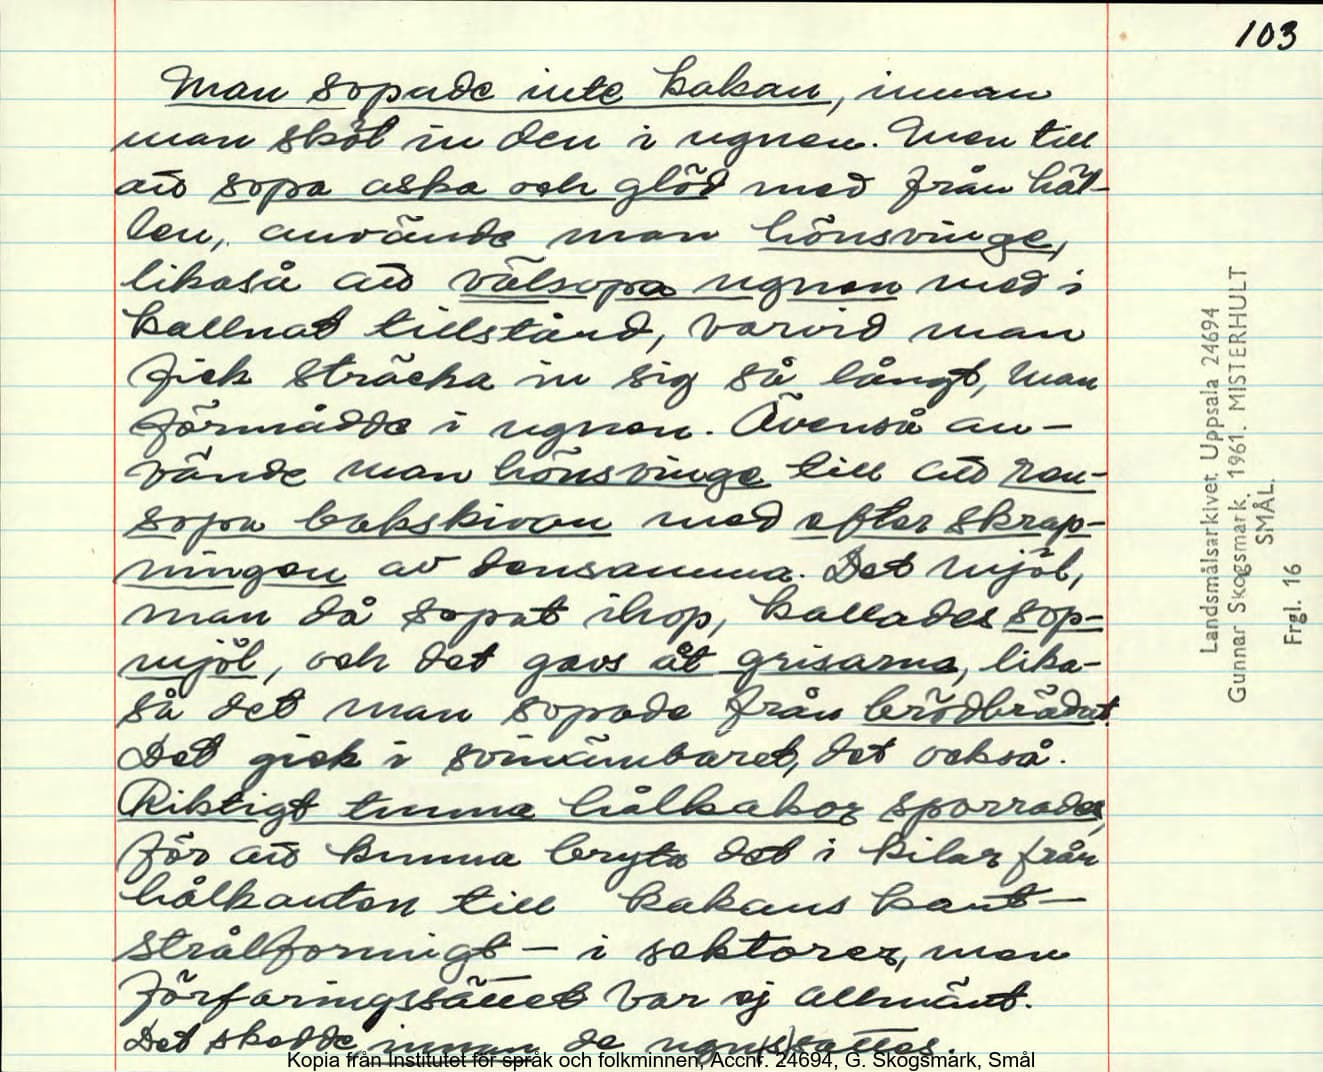 103
Man sopade inte kakan, innan
man sköt in den i ugnen. Men till
att sopa aska och glöd med från häl-
len, använde man hönsvinge,
likaså att välsopa ugnen med i
kallnat tillstånd, varvid man
fick sträcka in sig så långt, man
förmådde i ugnen. Ävenså an-
vände man hönsvinge till att ren-
sopa bakskivan med efter skrap-
ningen av densamma. Det mjöl,
man då sopat ihop, kallades sop-
mjöl, och det gavs åt grisarna, lika-
så det man sopade från brödbrädet.
Det gick i svinämbaret, det också.
Riktigt tunna hålkakor sporrades,
för att kunna bryta det i kilar från
hålkanten till kakans kant —
strålformigt — i sektorer, men
förfaringssättet var ej allmänt.
Det skedde innan de ugns(s)attes.
Landsmålsarkivet, Uppsala 24694
Gunnar Skogsmark. 1961. MISTERHULT
SMÅL.
Frgl. 16
Kopia från Institutet för språk och folkminnen, Accnr. 24694, G. Skogsmark, Smål